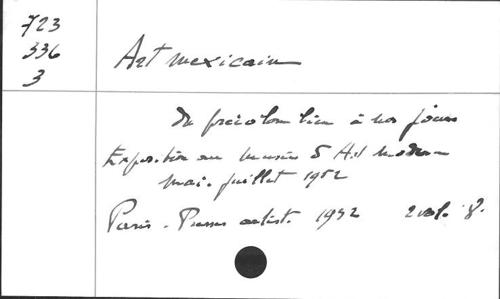 723
336
3
Art mexicain
Du précolombien à nos jours
Exposition au musée d'Art moderne
Mai-juillet 1952
Paris. Presses artist. 1952 2 vol. 8°.